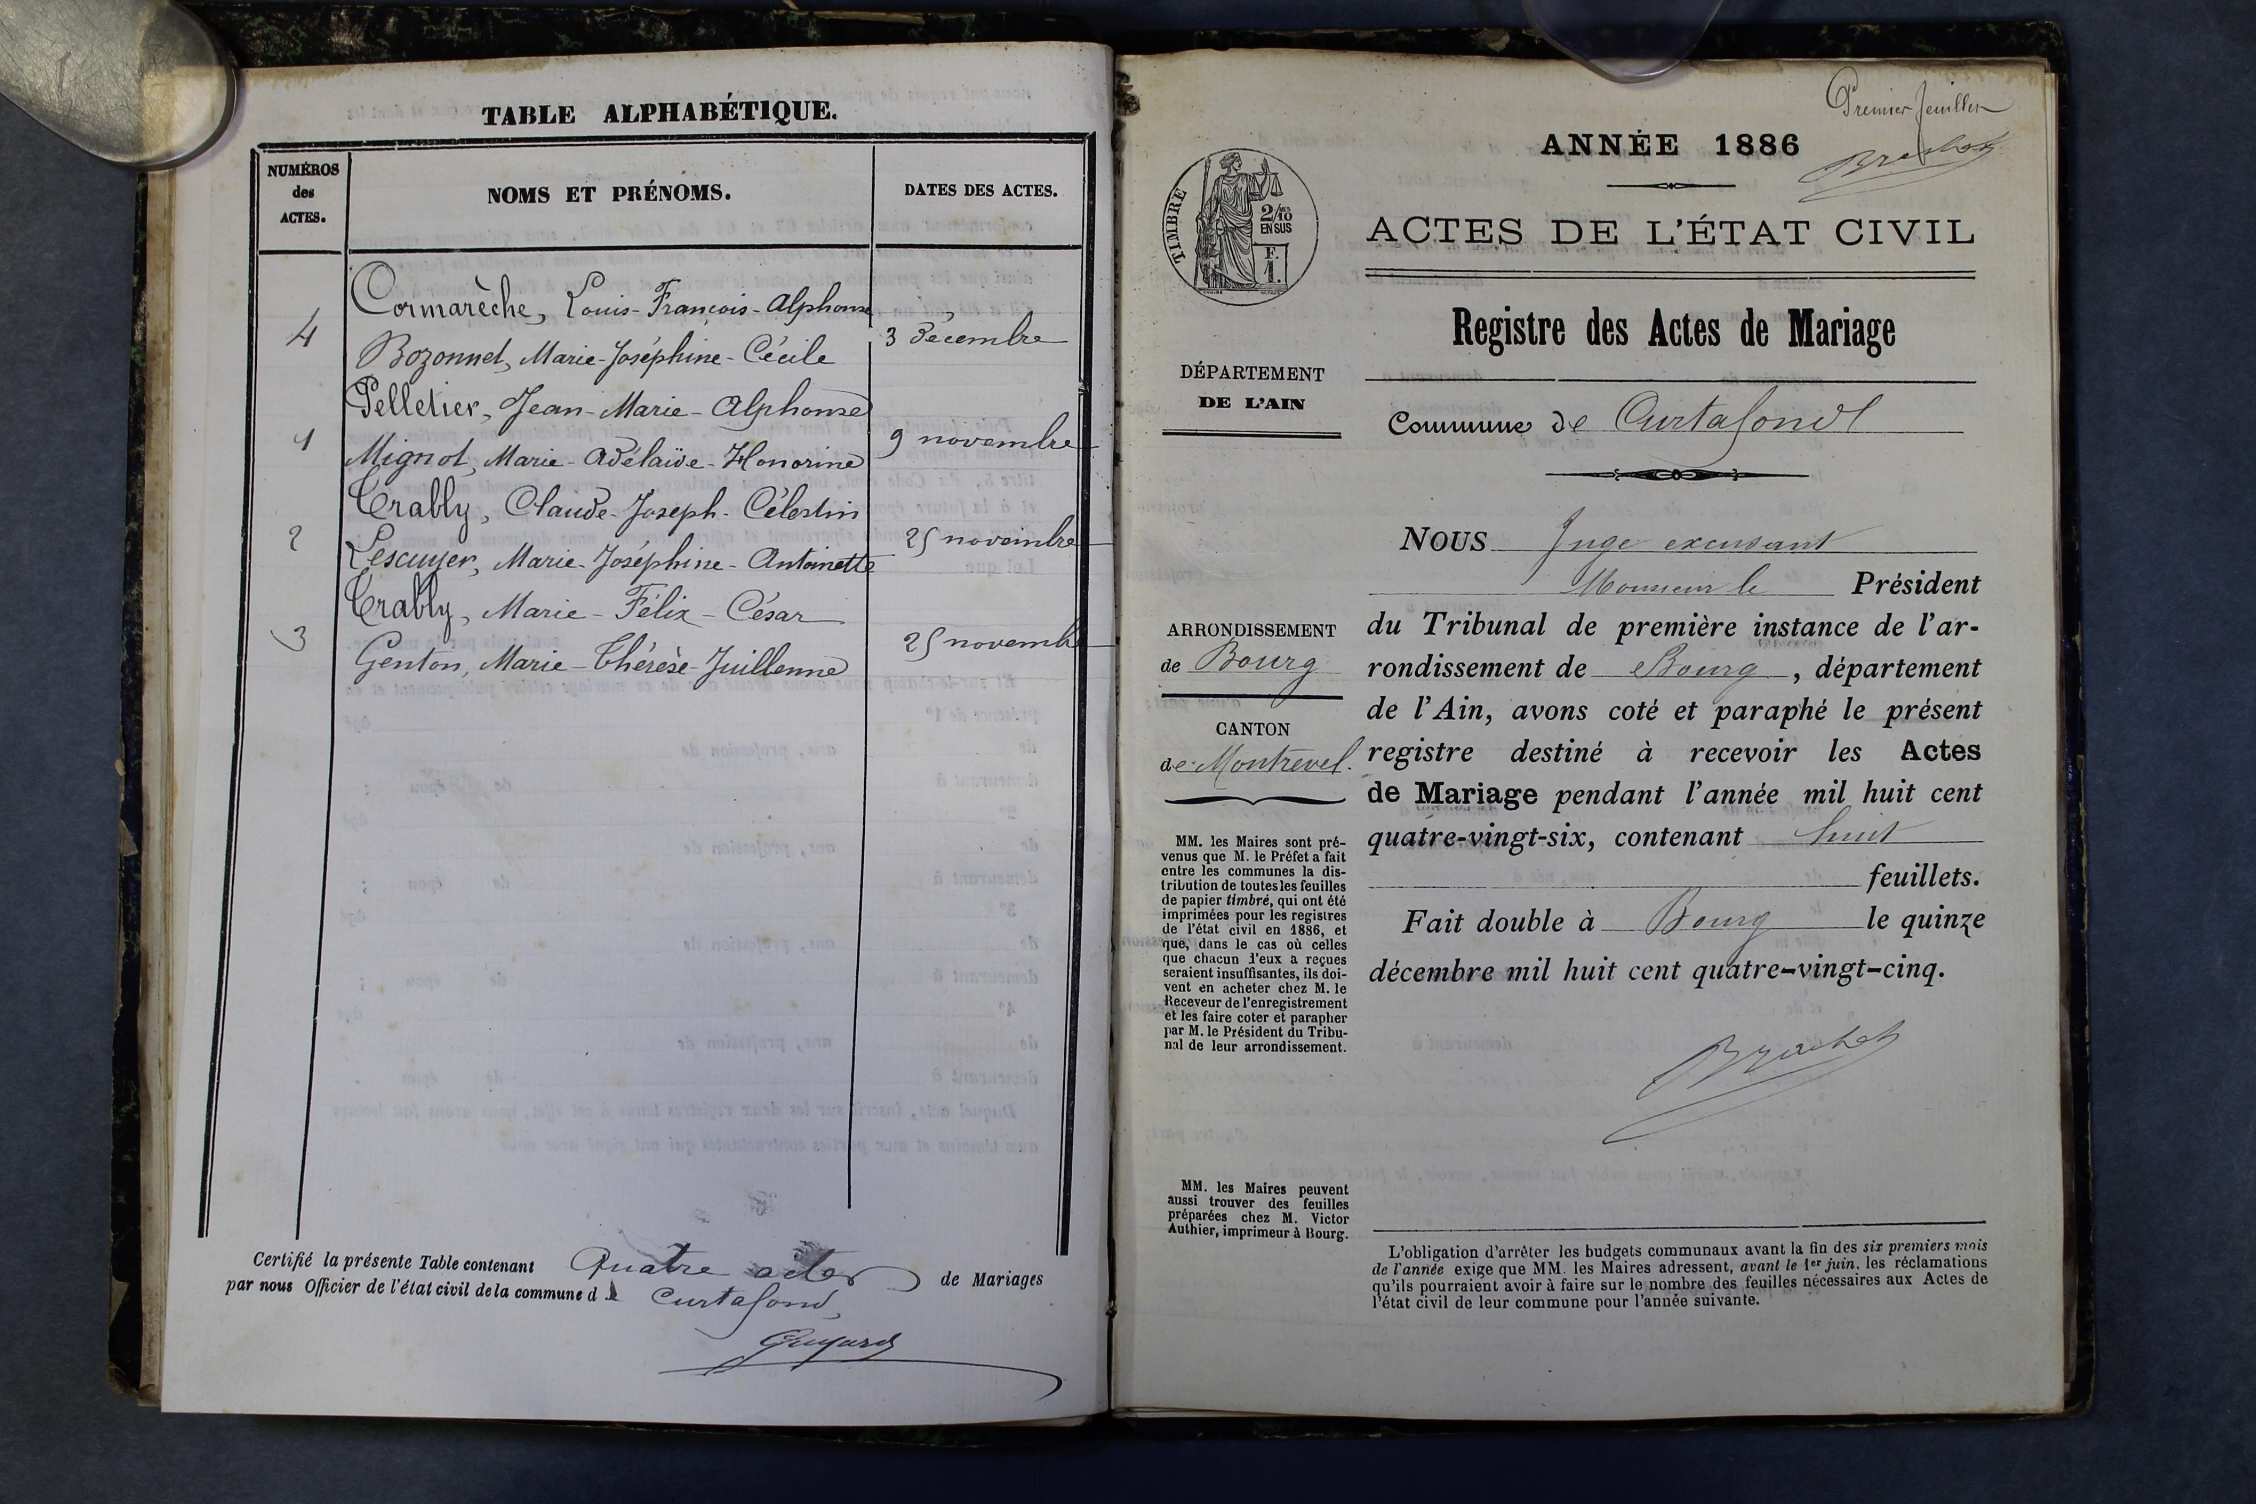 TABLE ALPHABÉTIQUE.
NUMÉROS
des
ACTES.
NOMS ET PRÉNOMS.
DATES DES ACTES.
Cormarèche, Louis-François-Alphonse
4
3 Décembre
Bozonnet, Marie-Joséphine-Cécile
Pelletier, Jean-Marie-Alphonse
1
9 novembre
Mignot, Marie-Adélaïde-Honorine
Trably, Claude-Joseph-Célestin
2
25 novembre
Lescuyer, Marie-Joséphine-Antoinette
Trably, Marie-Félix-César
3
25 novemb
Genton, Marie-Thérèse-Juillenne
Certifié la présente Table contenant Quatre actes de Mariages
par nous Officier de l'état civil de la commune de Curtafond,
Guyard
Premier feuillet
Brachet
ANNÉE 1886
TIMBRE
2/10
EN SUS
F.
1.
ACTES DE L'ÉTAT CIVIL
Registre des Actes de Mariage
DÉPARTEMENT
DE L'AIN
Commune de Curtafond
NOUS Juge excusant
Monsieur le Président
du Tribunal de première instance de l'ar-
rondissement de Bourg, département
de l'Ain, avons coté et paraphé le présent
registre destiné à recevoir les Actes
de Mariage pendant l'année mil huit cent
quatre-vingt-six, contenant huit
feuillets.
Fait double à Bourg le quinze
décembre mil huit cent quatre-vingt-cinq.
Brachet
ARRONDISSEMENT
de Bourg
CANTON
de Montrevel.
MM. les Maires sont pré-
venus que M. le Préfet a fait
entre les communes la dis-
tribution de toutes les feuilles
de papier timbré, qui ont été
imprimées pour les registres
de l'état civil en 1886, et
que, dans le cas où celles
que chacun d'eux a reçues
seraient insuffisantes, ils doi-
vent en acheter chez M. le
Receveur de l'enregistrement
et les faire coter et parapher
par M. le Président du Tribu-
nal de leur arrondissement.
MM. les Maires peuvent
aussi trouver des feuilles
préparées chez M. Victor
Authier, imprimeur à Bourg.
L'obligation d'arrêter les budgets communaux avant la fin des six premiers mois
de l'année exige que MM. les Maires adressent, avant le 1er juin, les réclamations
qu'ils pourraient avoir à faire sur le nombre des feuilles nécessaires aux Actes de
l'état civil de leur commune pour l'année suivante.